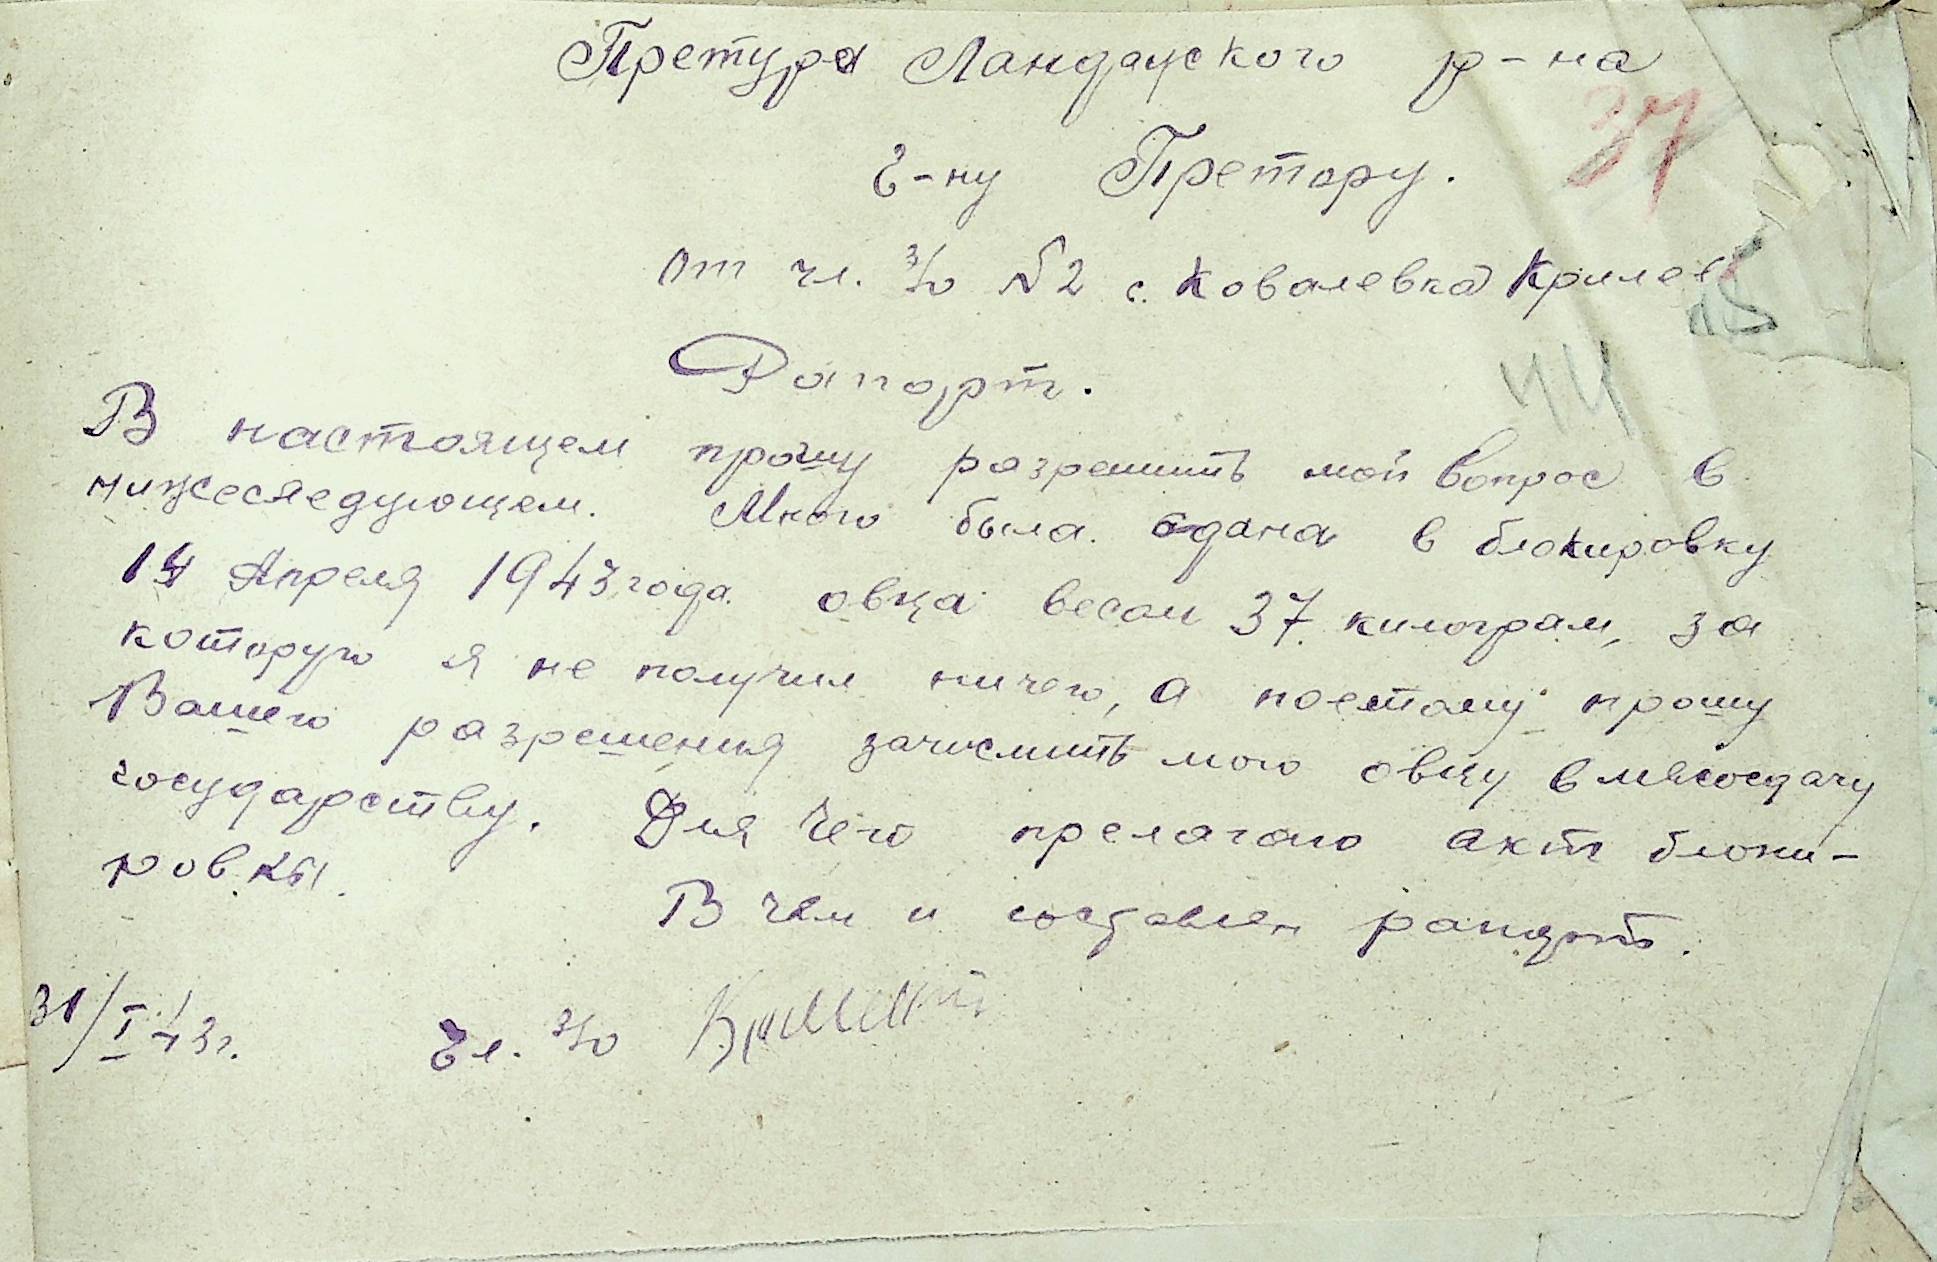 Претура Ландауского р-на
37
Г-ну Претору.
От чл. з/о №2 с. Ковалевка
44
Рапорт.
В настоящем прошу разрешить мой вопрос в
нижеследующем. Мною была сдана в блокировку
14 Апреля 1943 года овца весом 37 килограм, за
которую я не получил ничего, а поетому прошу
Вашего разрешения зачислить мою овцу в мясосдачу
государству. Для чего прелагаю акт блоки-
ровки.
В чем и составлен рапорт.
31/I 43г.
Чл. з/о